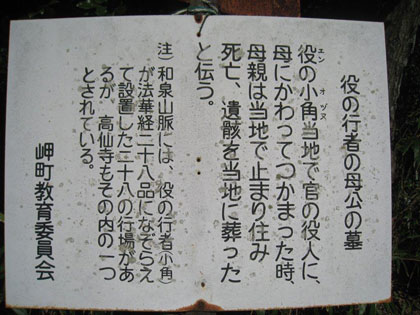 役の行者の母公の墓
エン オヅヌ
役の小角当地で官の役人に、
母にかわってつかまった時、
母親は当地で止まり住み
死亡、遺骸を当地に葬った
と伝う。
注)和泉山脈には、役の行者(小角)
が法華経二十八品になぞらえ
て設置した二十八の行場があ
るが、高仙寺もその内の一つ
とされている。
岬町教育委員会